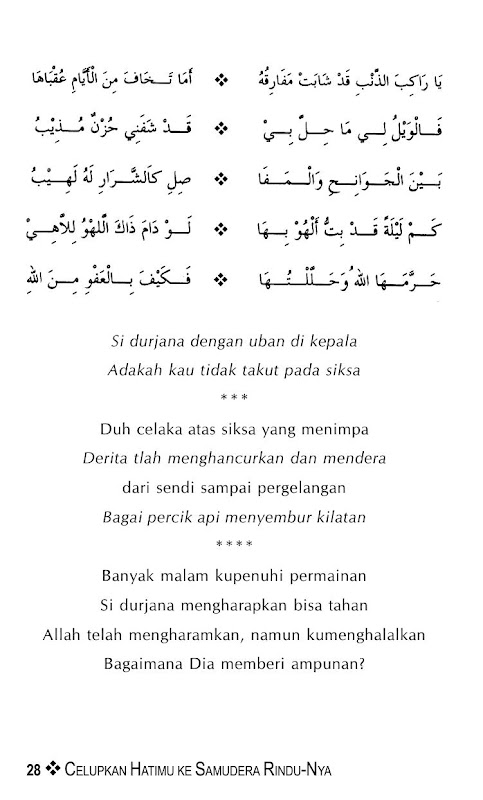 يَا رَاكِبَ الذَّنْبِ قَدْ شَابَتْ مَفَارِقُهُ ❖ أَمَا تَـخَافَ مِنَ الْأَيَّامِ عُقْبَاهَا
فَـالْوَيْلُ لِـي مَا حِلَّ بِيْ ❖ قَـدْ شَفَنِي حُزْنٌ مُـذِيْبُ
بَـيْنَ الْجَـوَانِـحِ وَالْـمَـفَا ❖ صِلِ كَالشَّرَارِ لَهُ لَهِيْبُ
كَـمْ لَيْلَةً قَـدْ بِتُّ أَلْهُوْ بِـهَا ❖ لَـوْ دَامَ ذَاكَ اللَّهْوُ لِلاَّهِيْ
حَـرَّمَـهَا اللهُ وَحَـلَّـلْـتُـهَا ❖ فَـكَيْفَ بِـالْعَفْوِ مِـنَ اللهِ
Si durjana dengan uban di kepala
Adakah kau tidak takut pada siksa
***
Duh celaka atas siksa yang menimpa
Derita tlah menghancurkan dan mendera
dari sendi sampai pergelangan
Bagai percik api menyembur kilatan
****
Banyak malam kupenuhi permainan
Si durjana mengharapkan bisa tahan
Allah telah mengharamkan, namun kumenghalalkan
Bagaimana Dia memberi ampunan?
28 ❖ CELUPKAN HATIMU KE SAMUDERA RINDU-NYA